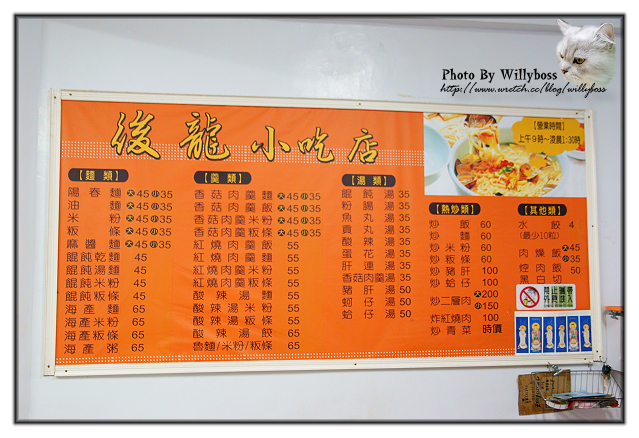 Photo By Willyboss
http://www.wretch.cc/blog/willyboss
後龍小吃店
【營業時間】
上午9時～凌晨1:30時
【麵類】
陽春麵 大45小35
油麵 大45小35
米粉 大45小35
粄條 大45小35
麻醬麵 大45小35
餛飩乾麵 45
餛飩湯麵 45
餛飩米粉 45
餛飩粄條 45
海產麵 65
海產米粉 65
海產粄條 65
海產粥 65
【羹類】
香菇肉羹麵 大45小35
香菇肉羹飯 大45小35
香菇肉羹米粉 大45小35
香菇肉羹粄條 大45小35
紅燒肉羹麵 55
紅燒肉羹飯 55
紅燒肉羹米粉 55
紅燒肉羹粄條 55
酸辣湯麵 55
酸辣湯米粉 55
酸辣湯粄條 55
酸辣湯餃 65
魯麵/米粉/粄條 65
【湯類】
餛飩湯 35
粉腸湯 35
魚丸湯 35
貢丸湯 35
酸辣湯 35
蛋花湯 35
肝連湯 35
香菇肉羹 35
豬肝湯 50
蚵仔湯 50
蛤仔湯 50
【熱炒類】
炒飯 60
炒麵 60
炒米粉 60
炒粄條 60
炒豬肝 100
炒蛤仔 100
炒二層肉 大200
小150
炸紅燒肉 100
炒青菜 時價
【其他類】
水餃 4
(最少10粒)
肉燥飯 大45
小35
焢肉飯 50
黑白切